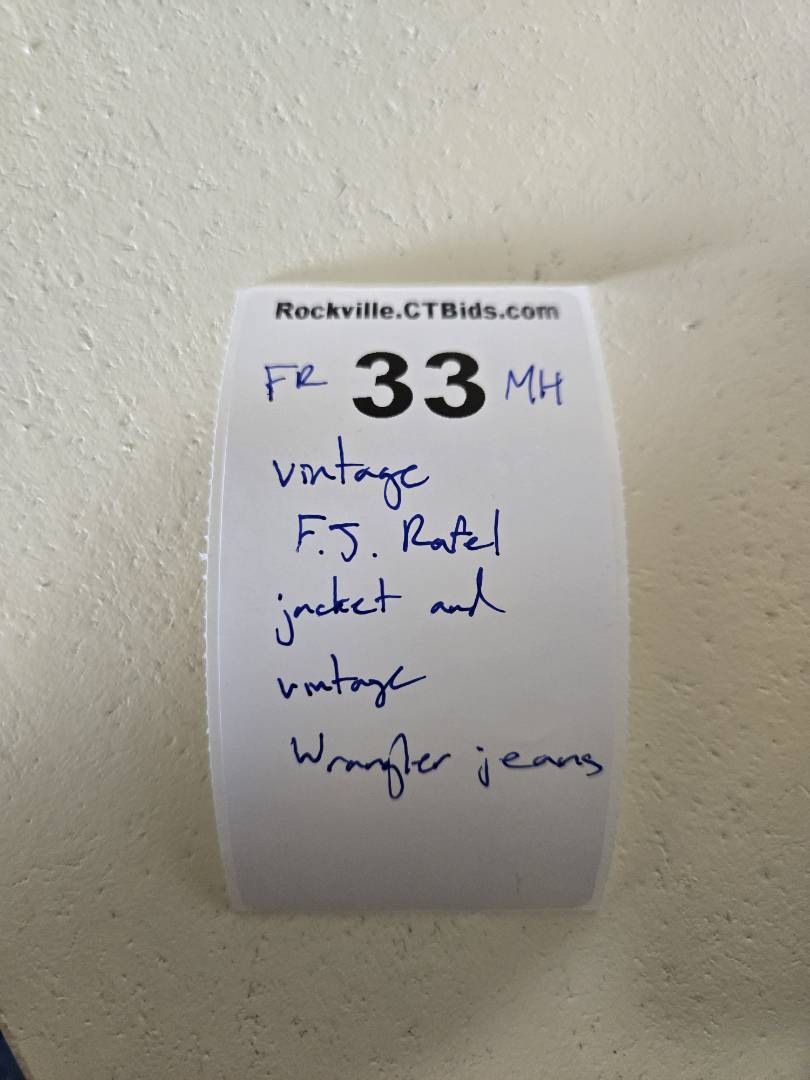 Rockville.CTBids.com
FR 33 MH
vintage
F.J. Ratel
jacket and
vintage
Wrangler jeans